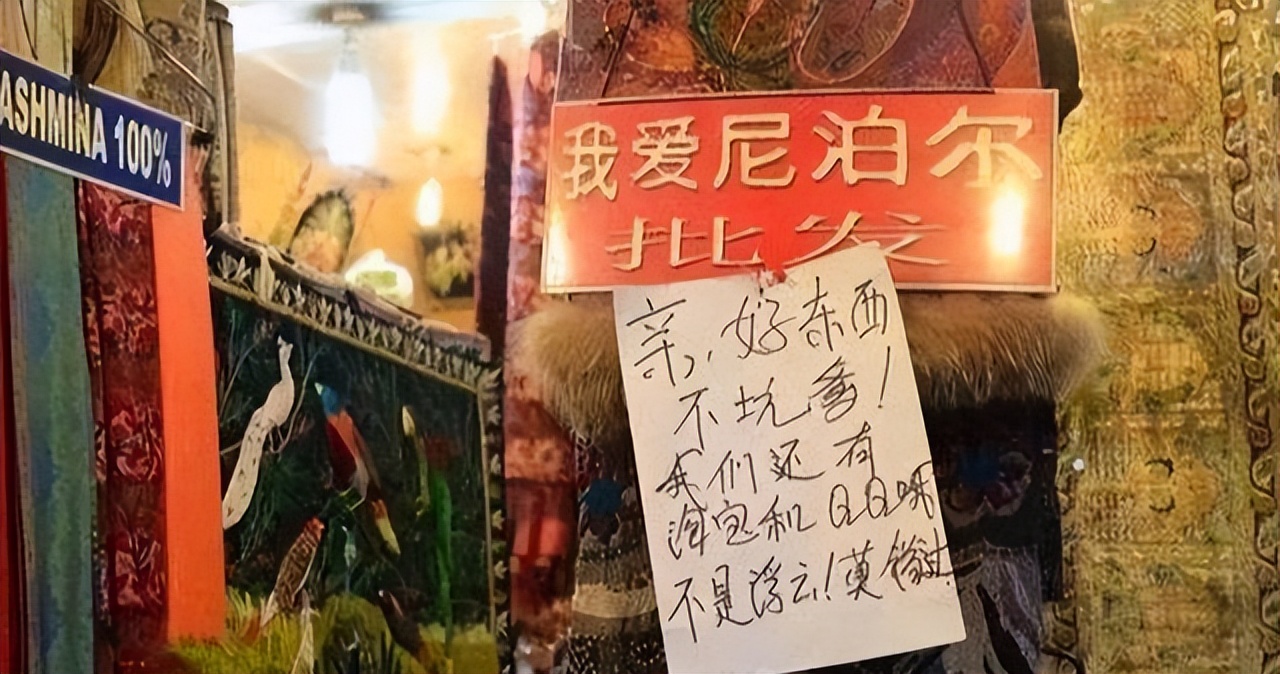 ASHMINA 100%
我爱尼泊尔
批发
亲,好东西
不坑爹!
我们还有
淘宝和QQ呀
不是浮云!莫错过